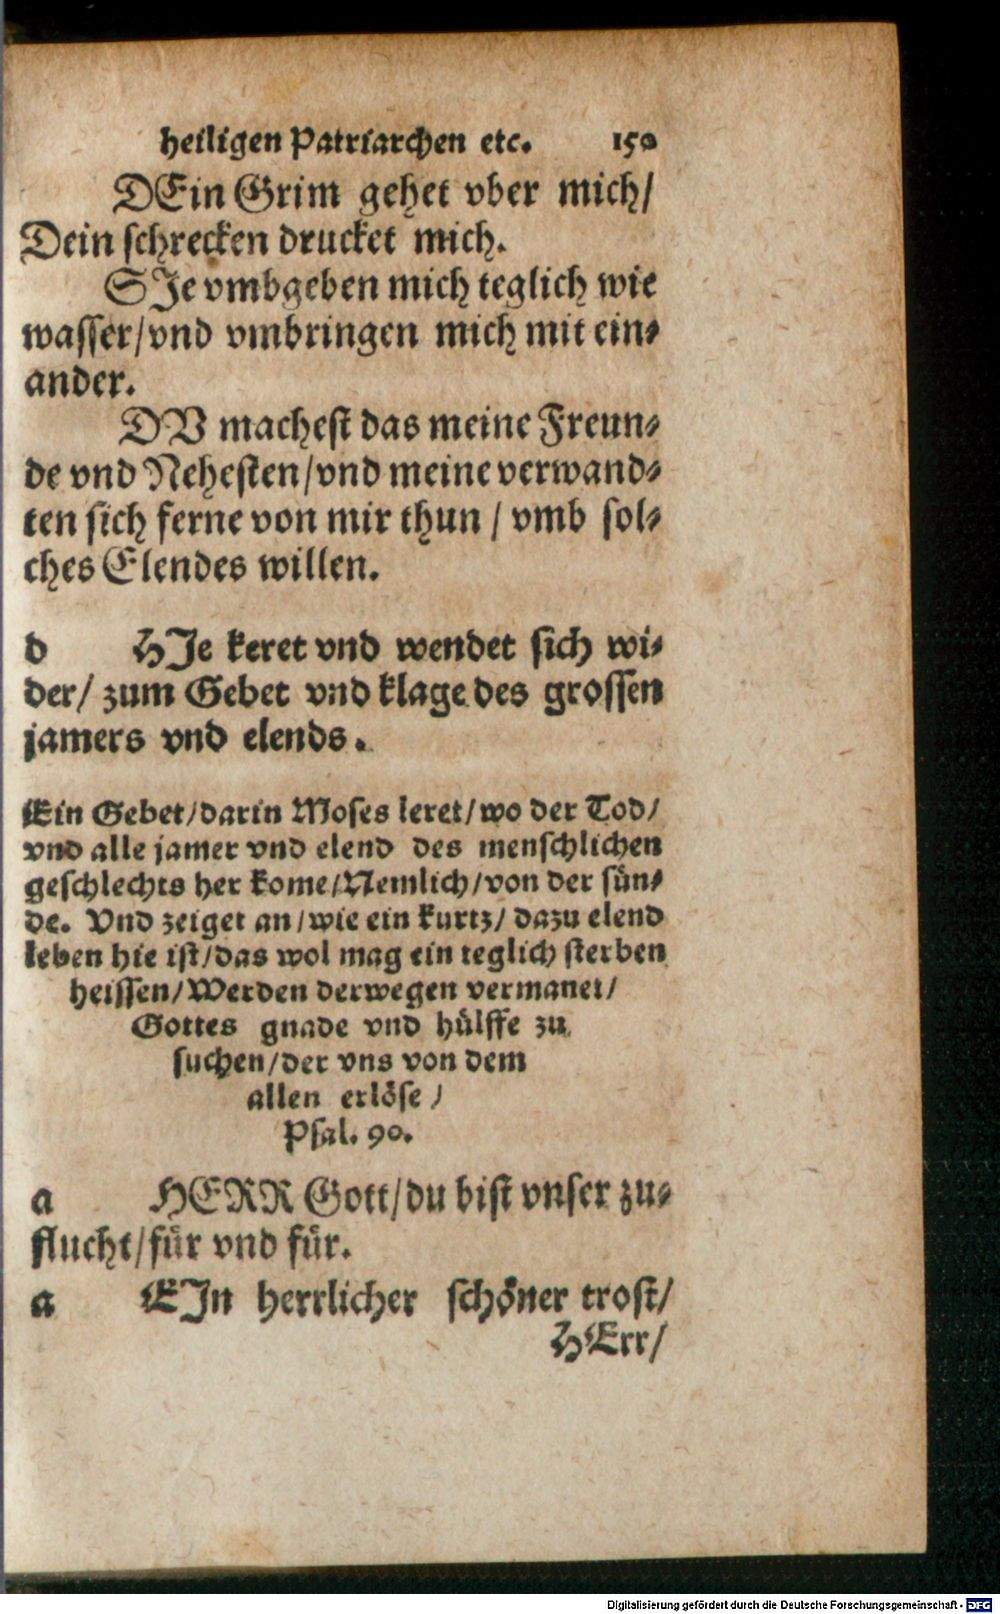 heiligen Patriarchen etc. 150
DEin Grim gehet vber mich/
Dein schrecken drucket mich.
SJe vmbgeben mich teglich wie
wasser/vnd vmbringen mich mit ein⸗
ander.
DV machest das meine Freun⸗
de vnd Nehesten/vnd meine verwand⸗
ten sich ferne von mir thun / vmb sol⸗
ches Elendes willen.
d HJe keret vnd wendet sich wi⸗
der/ zum Gebet vnd klage des grossen
jamers vnd elends.
Ein Gebet/darin Moses leret/wo der Tod/
vnd alle jamer vnd elend des menschlichen
geschlechts her kome/Nemlich/von der sün⸗
de. Vnd zeiget an/wie ein kurtz/ dazu elend
leben hie ist/das wol mag ein teglich sterben
heissen/Werden derwegen vermanet/
Gottes gnade vnd hülffe zu
suchen/der vns von dem
allen erlöse/
Psal. 90.
a HERR Gott/du bist vnser zu⸗
flucht/für vnd für.
a EJn herrlicher schöner trost/
HErr/
Digitalisierung gefördert durch die Deutsche Forschungsgemeinschaft - DFG